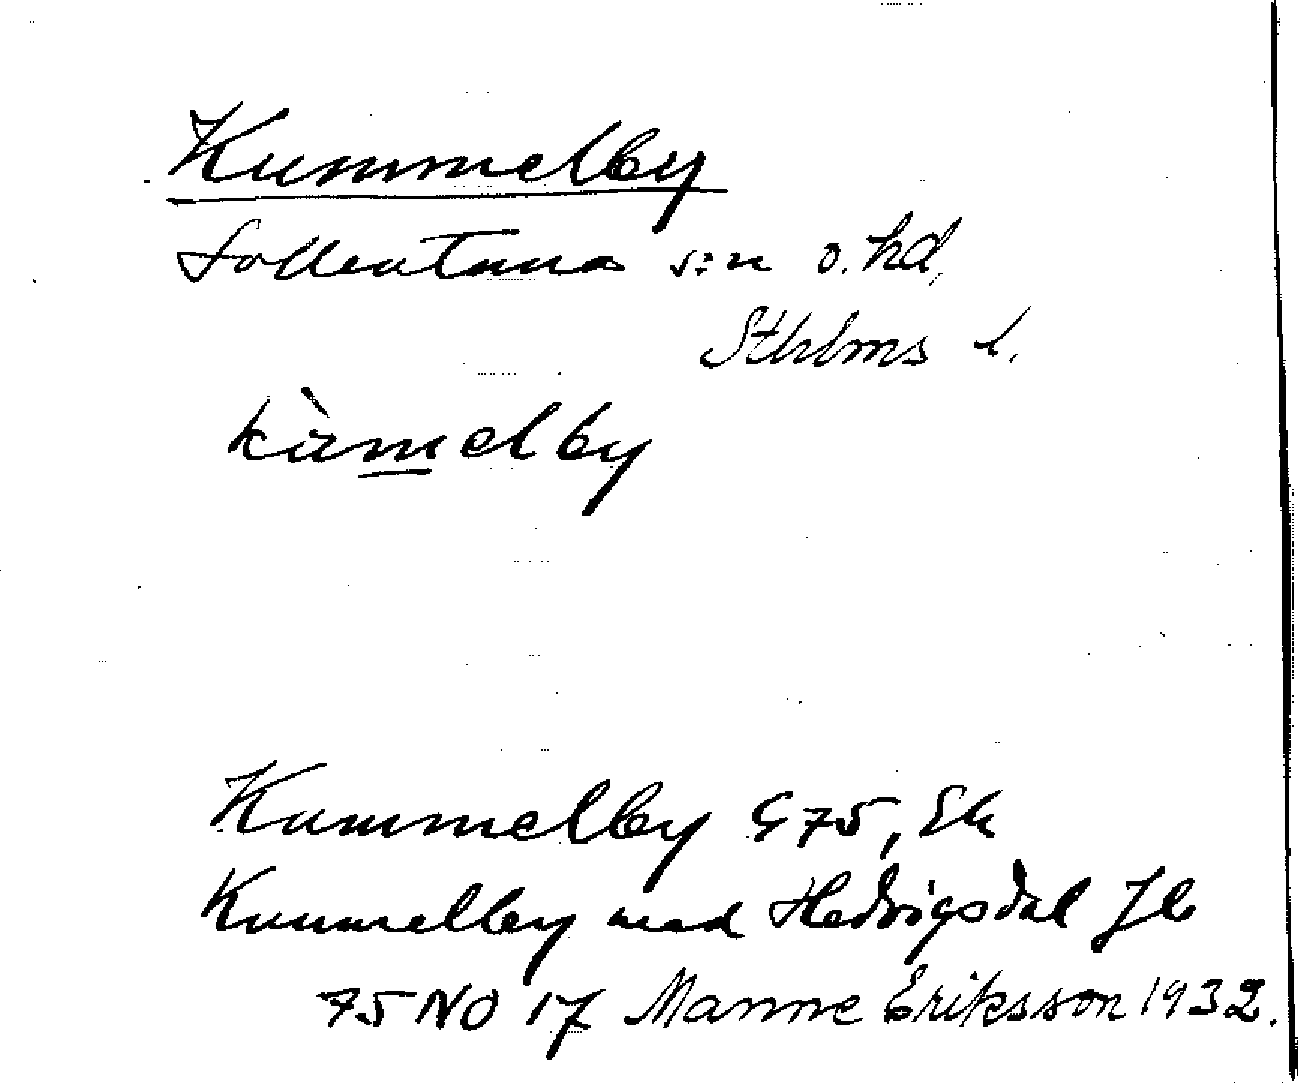 Kummelby
Sollentuna s:n o. hd,
Sthlms l.
kùmelby
Kummelby G 75, Ek
Kummelby med Hedvigsdal Jb
75 NO 17 Manne Eriksson 1932.